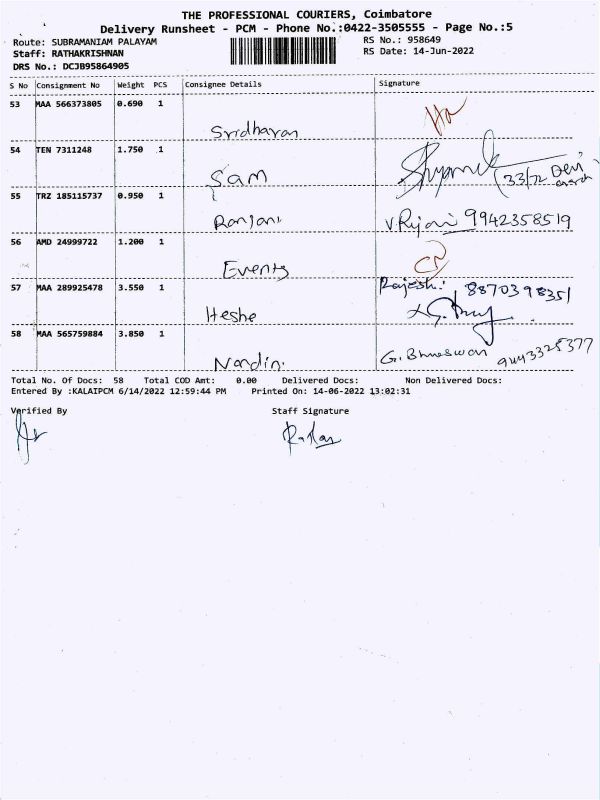 THE PROFESSIONAL COURIERS, Coimbatore
Delivery Runsheet - PCM - Phone No.:0422-3505555 - Page No.:5
Route: SUBRAMANIAM PALAYAM
RS No.: 958649
Staff: RATHAKRISHNAN
RS Date: 14-Jun-2022
DRS No.: DCJB95864905
S No Consignment No Weight PCS Consignee Details Signature
53 MAA 566373805 0.690 1
Sridharan
54 TEN 7311248 1.750 1
Sam 33/72 Devi
55 TRZ 185115737 0.950 1
Ranjani 9942358519
56 AMD 24999722 1.200 1
Events
57 MAA 289925478 3.550 1 Rajesh: 8870398351
Heshe
58 MAA 565759884 3.850 1
Nandin. G. Bhuwswari 9443325377
Total No. Of Docs: 58 Total COD Amt: 0.00 Delivered Docs: Non Delivered Docs:
Entered By :KALAIPCM 6/14/2022 12:59:44 PM Printed On: 14-06-2022 13:02:31
Verified By Staff Signature